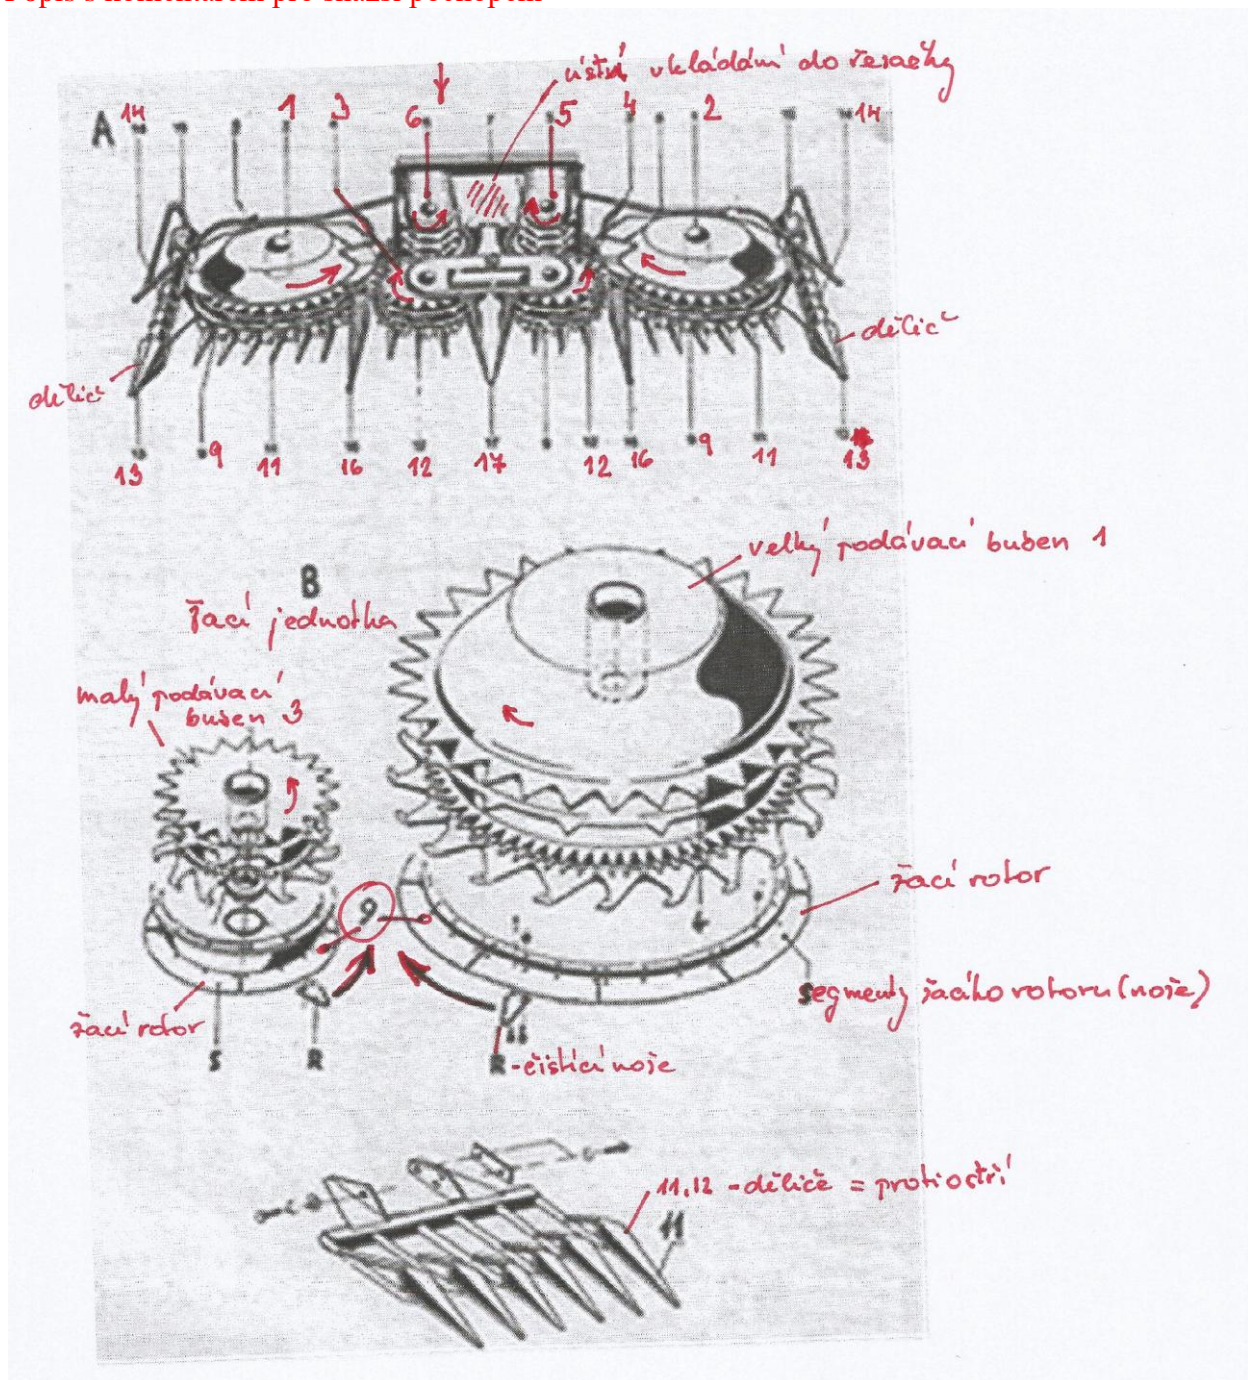 Popis s komentářem pro snazší pochopení
ústní vkládání do řezačky
A 14 1 3 6 5 4 2 14
dělič
dělič
13 9 11 16 12 17 12 16 9 11 13
velký podávací buben 1
B
žací jednotka
malý podávací
buben 3
9
žací rotor
segmenty žacího rotoru (nože)
žací rotor
S R R - čistící nože
11
11,12 - děliče = protiostří
11